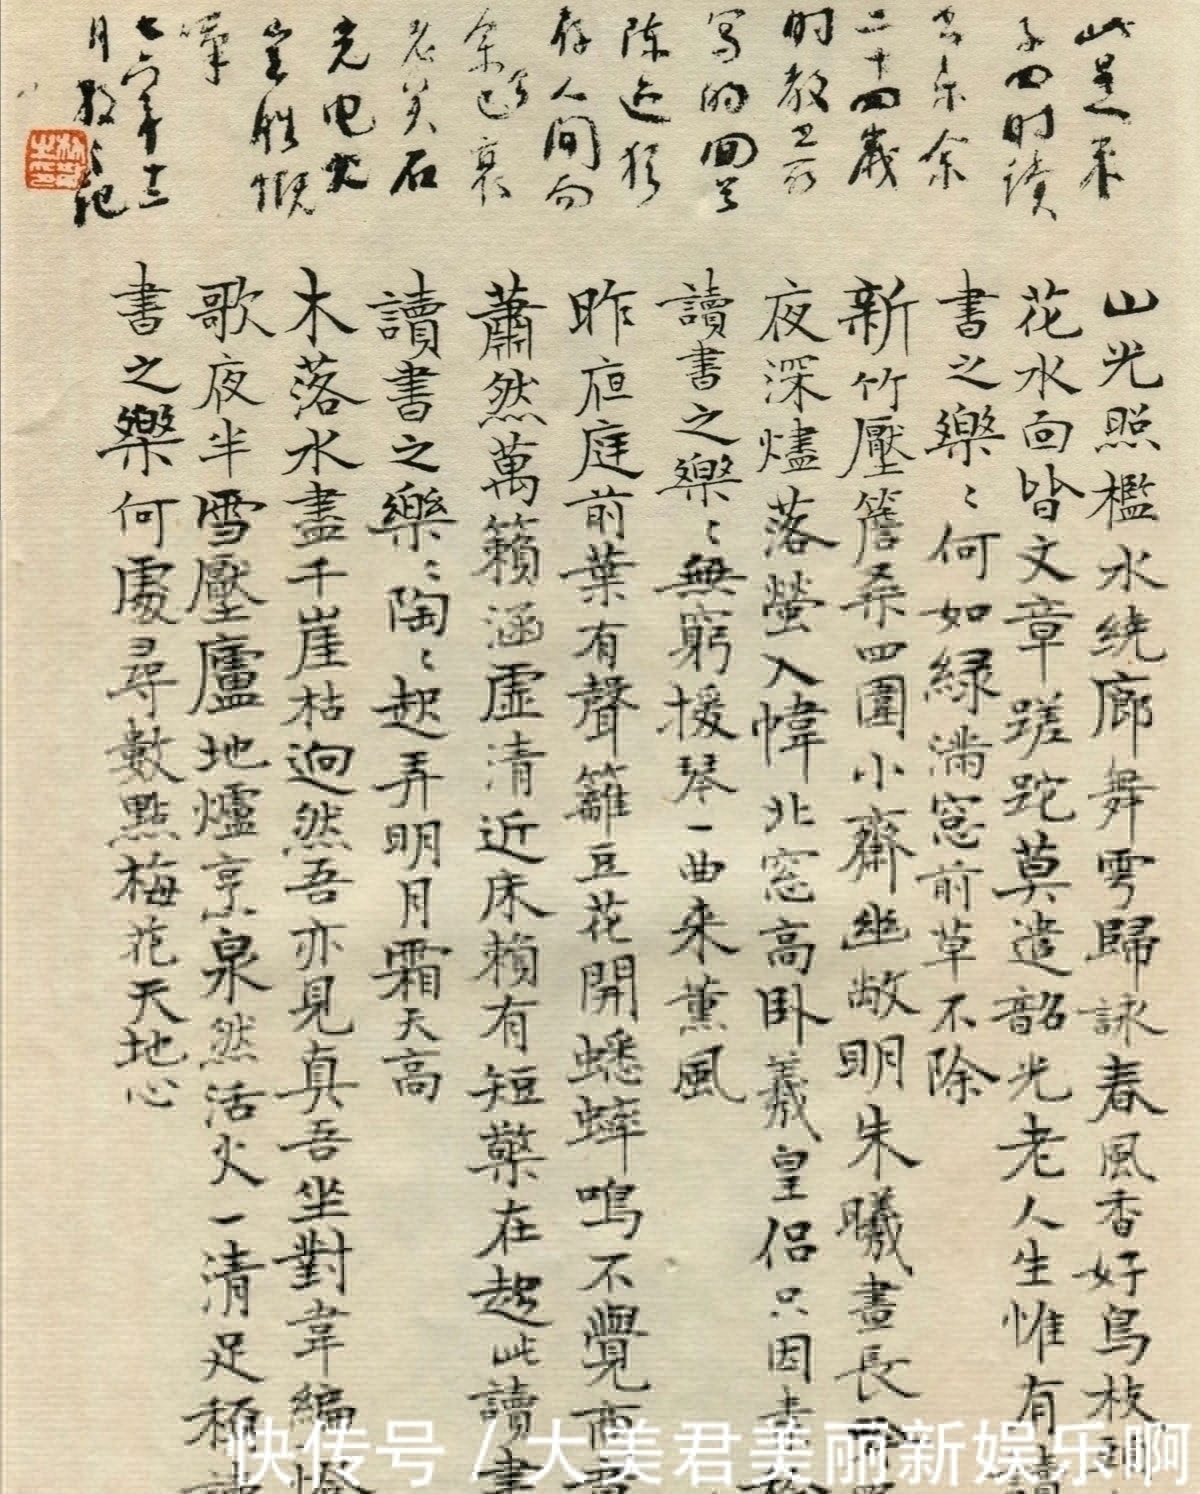 此是
子四时读
书乐余
二十四岁
时教
写的
陈迹犹
存人间而
余已衰
老矣石
光电火
岂胜慨
七六年十二
月
山光照檻水繞廊舞雩歸詠春風香好鳥枝
花水面皆文章蹉跎莫遣韶光老人生惟有讀
書之樂〻何如綠滿窓前草不除
新竹壓簷桑四圍小齋幽敞明朱曦晝長
夜深燼落螢入幃北窓高卧羲皇侣只因素
讀書之樂〻無窮援琴一曲来薰風
昨夜庭前葉有聲籬豆花開蟋蟀鳴不覺商
蕭然萬籟涵虛清近床賴有短檠在趂此讀書
讀書之樂〻陶〻起弄明月霜天高
木落水盡千崖枯迥然吾亦見真吾坐對韋編
歌夜半雪壓廬地爐烹泉然活火一清足稱
書之樂何處尋數點梅花天地心
快传号 / 大美君美丽新娱乐啊